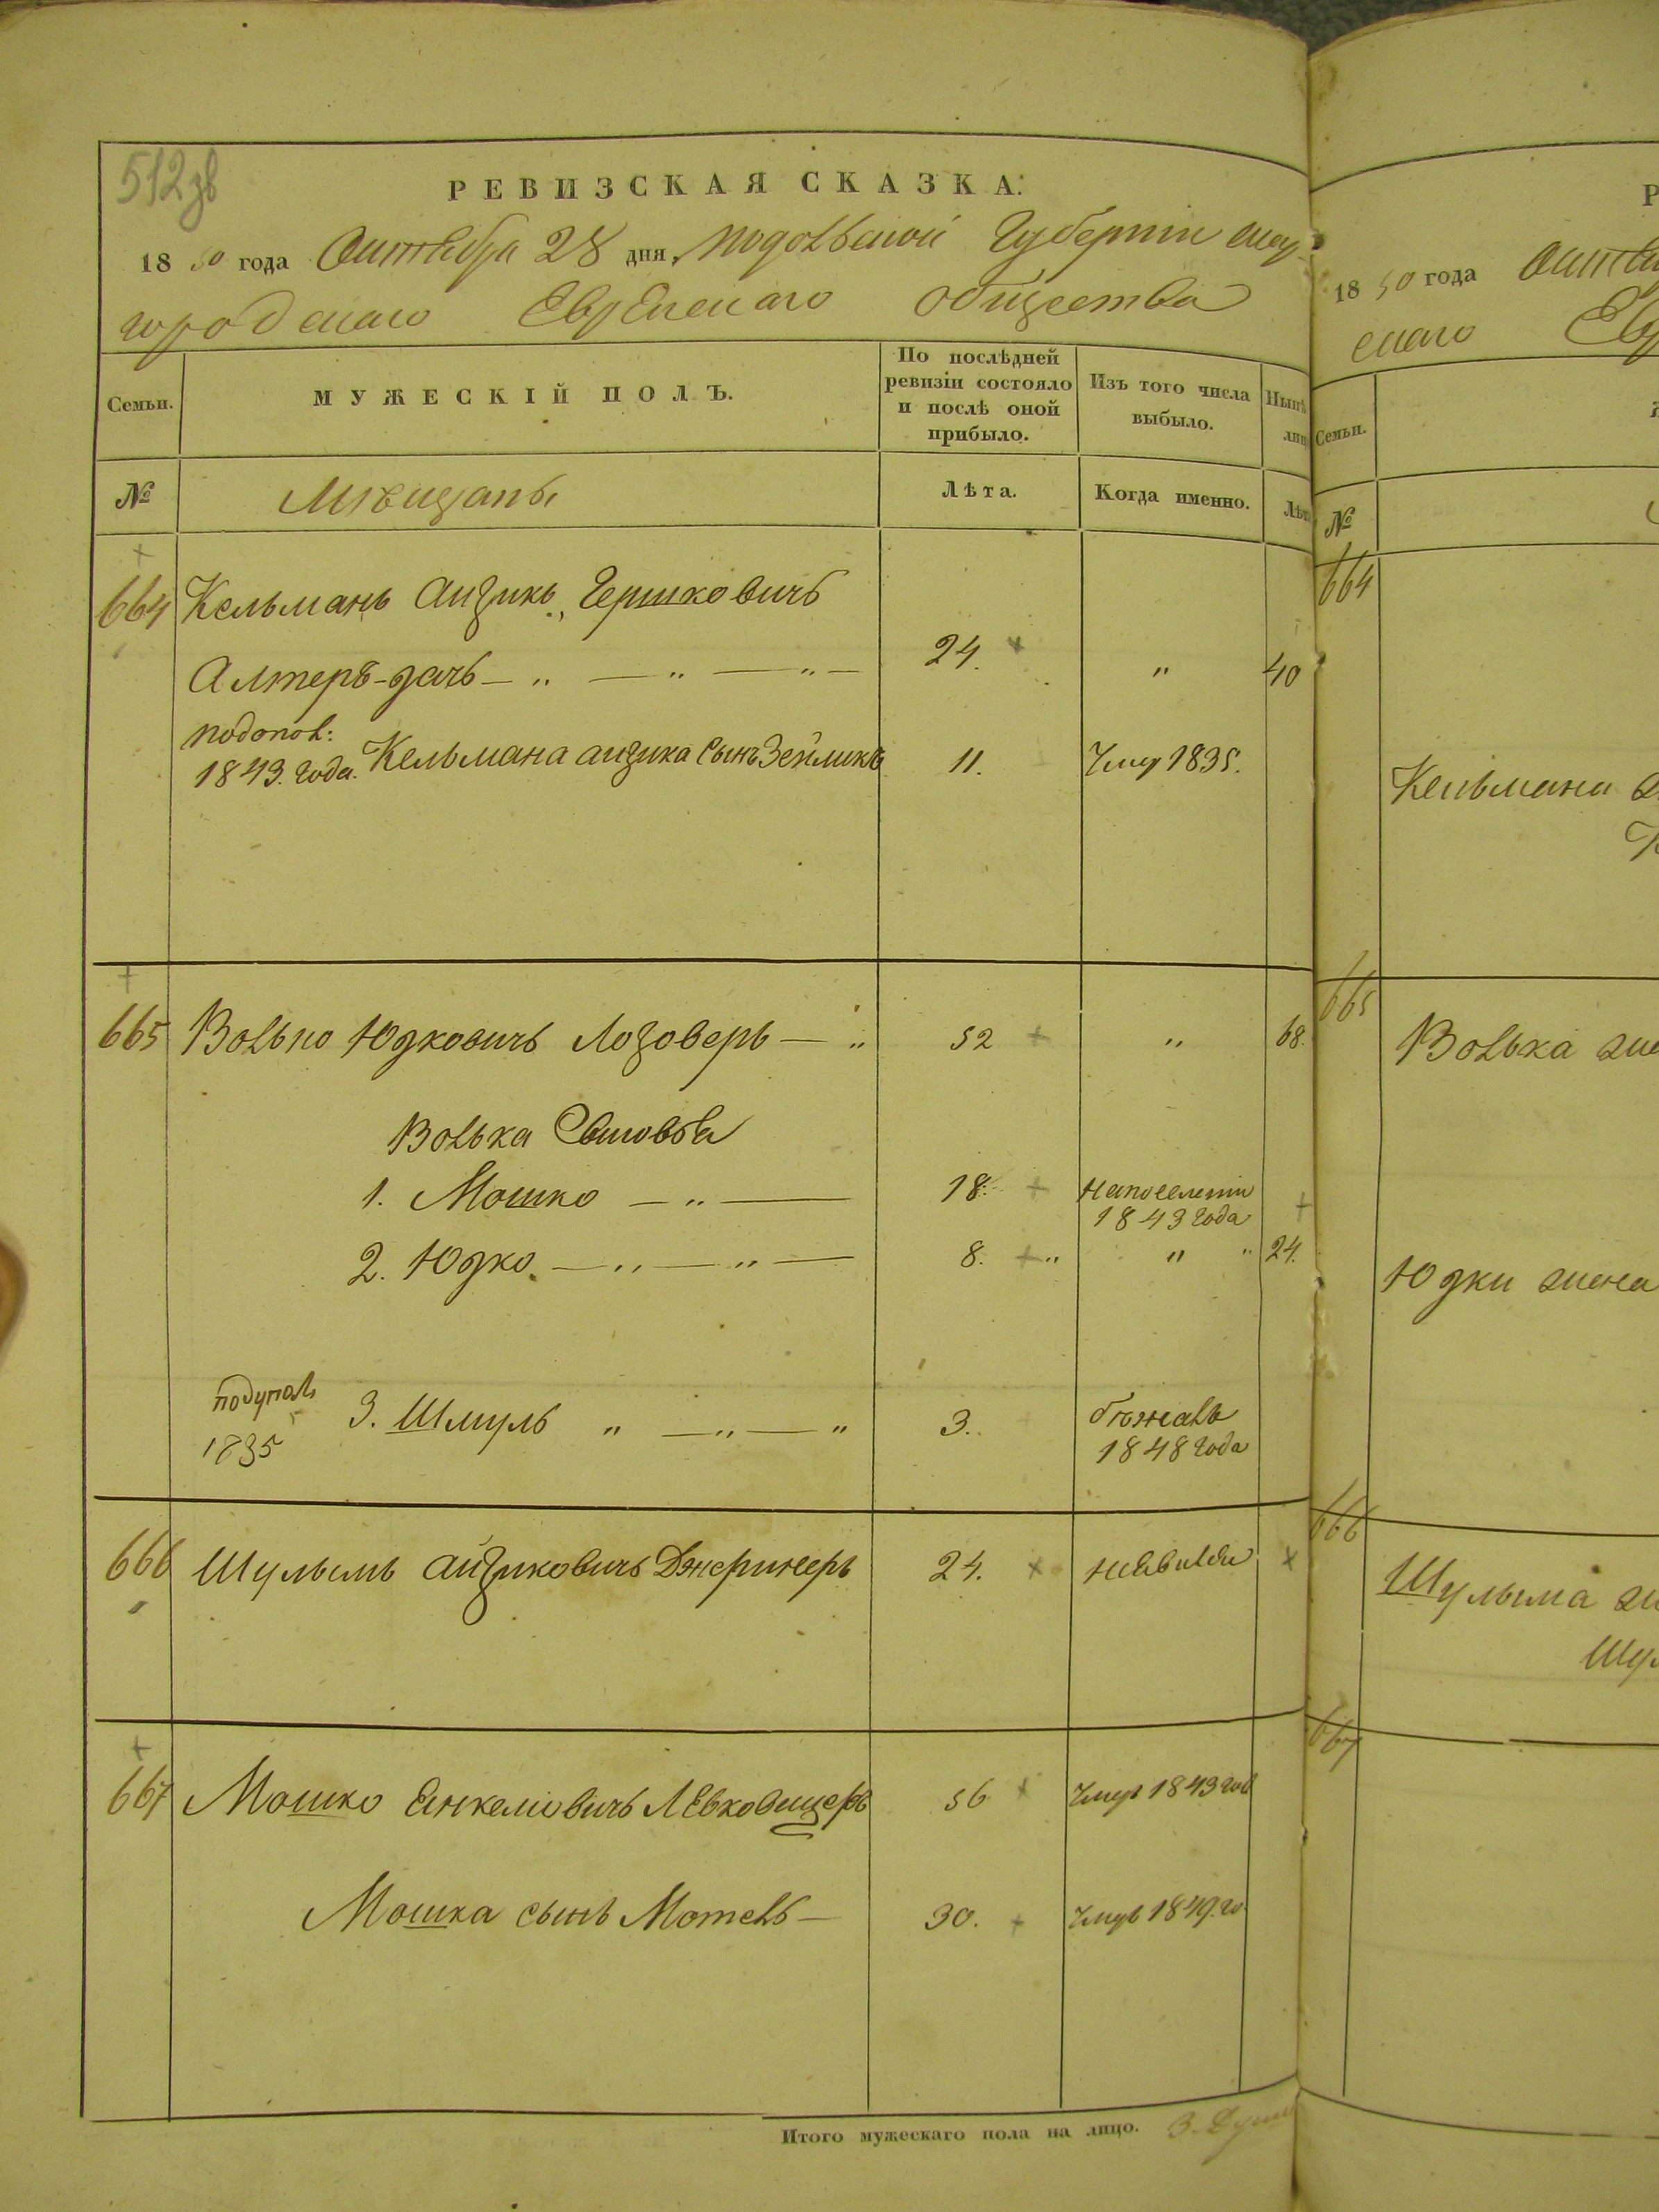 512
РЕВИЗСКАЯ СКАЗКА.
1850 года Октября 28 дня, Подольской Губернии
городскаго Еврейскаго Общества
Семьи.
МУЖЕСКІЙ ПОЛЪ.
По послѣдней ревизіи состояло и послѣ оной прибыло.
Изъ того числа выбыло.
№
Мѣщаны
Лѣта.
Когда именно.
664 Кельманъ Айзикъ Гершковичъ
Алтеръ-зачъ — „ — „ — „ — 24. „ 40
1843. года. Кельмана айзика Сынъ Зейликъ 11. Умер 1835.
665 Волько Юдковичъ Лозоверъ — „ 52 „ 68.
Волька Сыновья
1. Мошко — „ — 18. Напоселении
1843 года
2. Юдко. — „ — „ — 8. „ „ „ 24.
1835 3. Шмуль „ — „ — „ 3. бѣжалъ
1848 года
666 Шулымъ айзиковичъ Джеринеръ 24. неявился
667 Мошко Янкелиовичъ Левковецеръ 56 Умеръ 1843 год
Мошка сынъ Мотель — 30. Умеръ 1849. го.
Итого мужескаго пола на лицо. 3. Души
Р
1850 года
скаго
Семьи.
№
664
Кельмана
665
Волька
Юдки жена
666
Шулыма
667